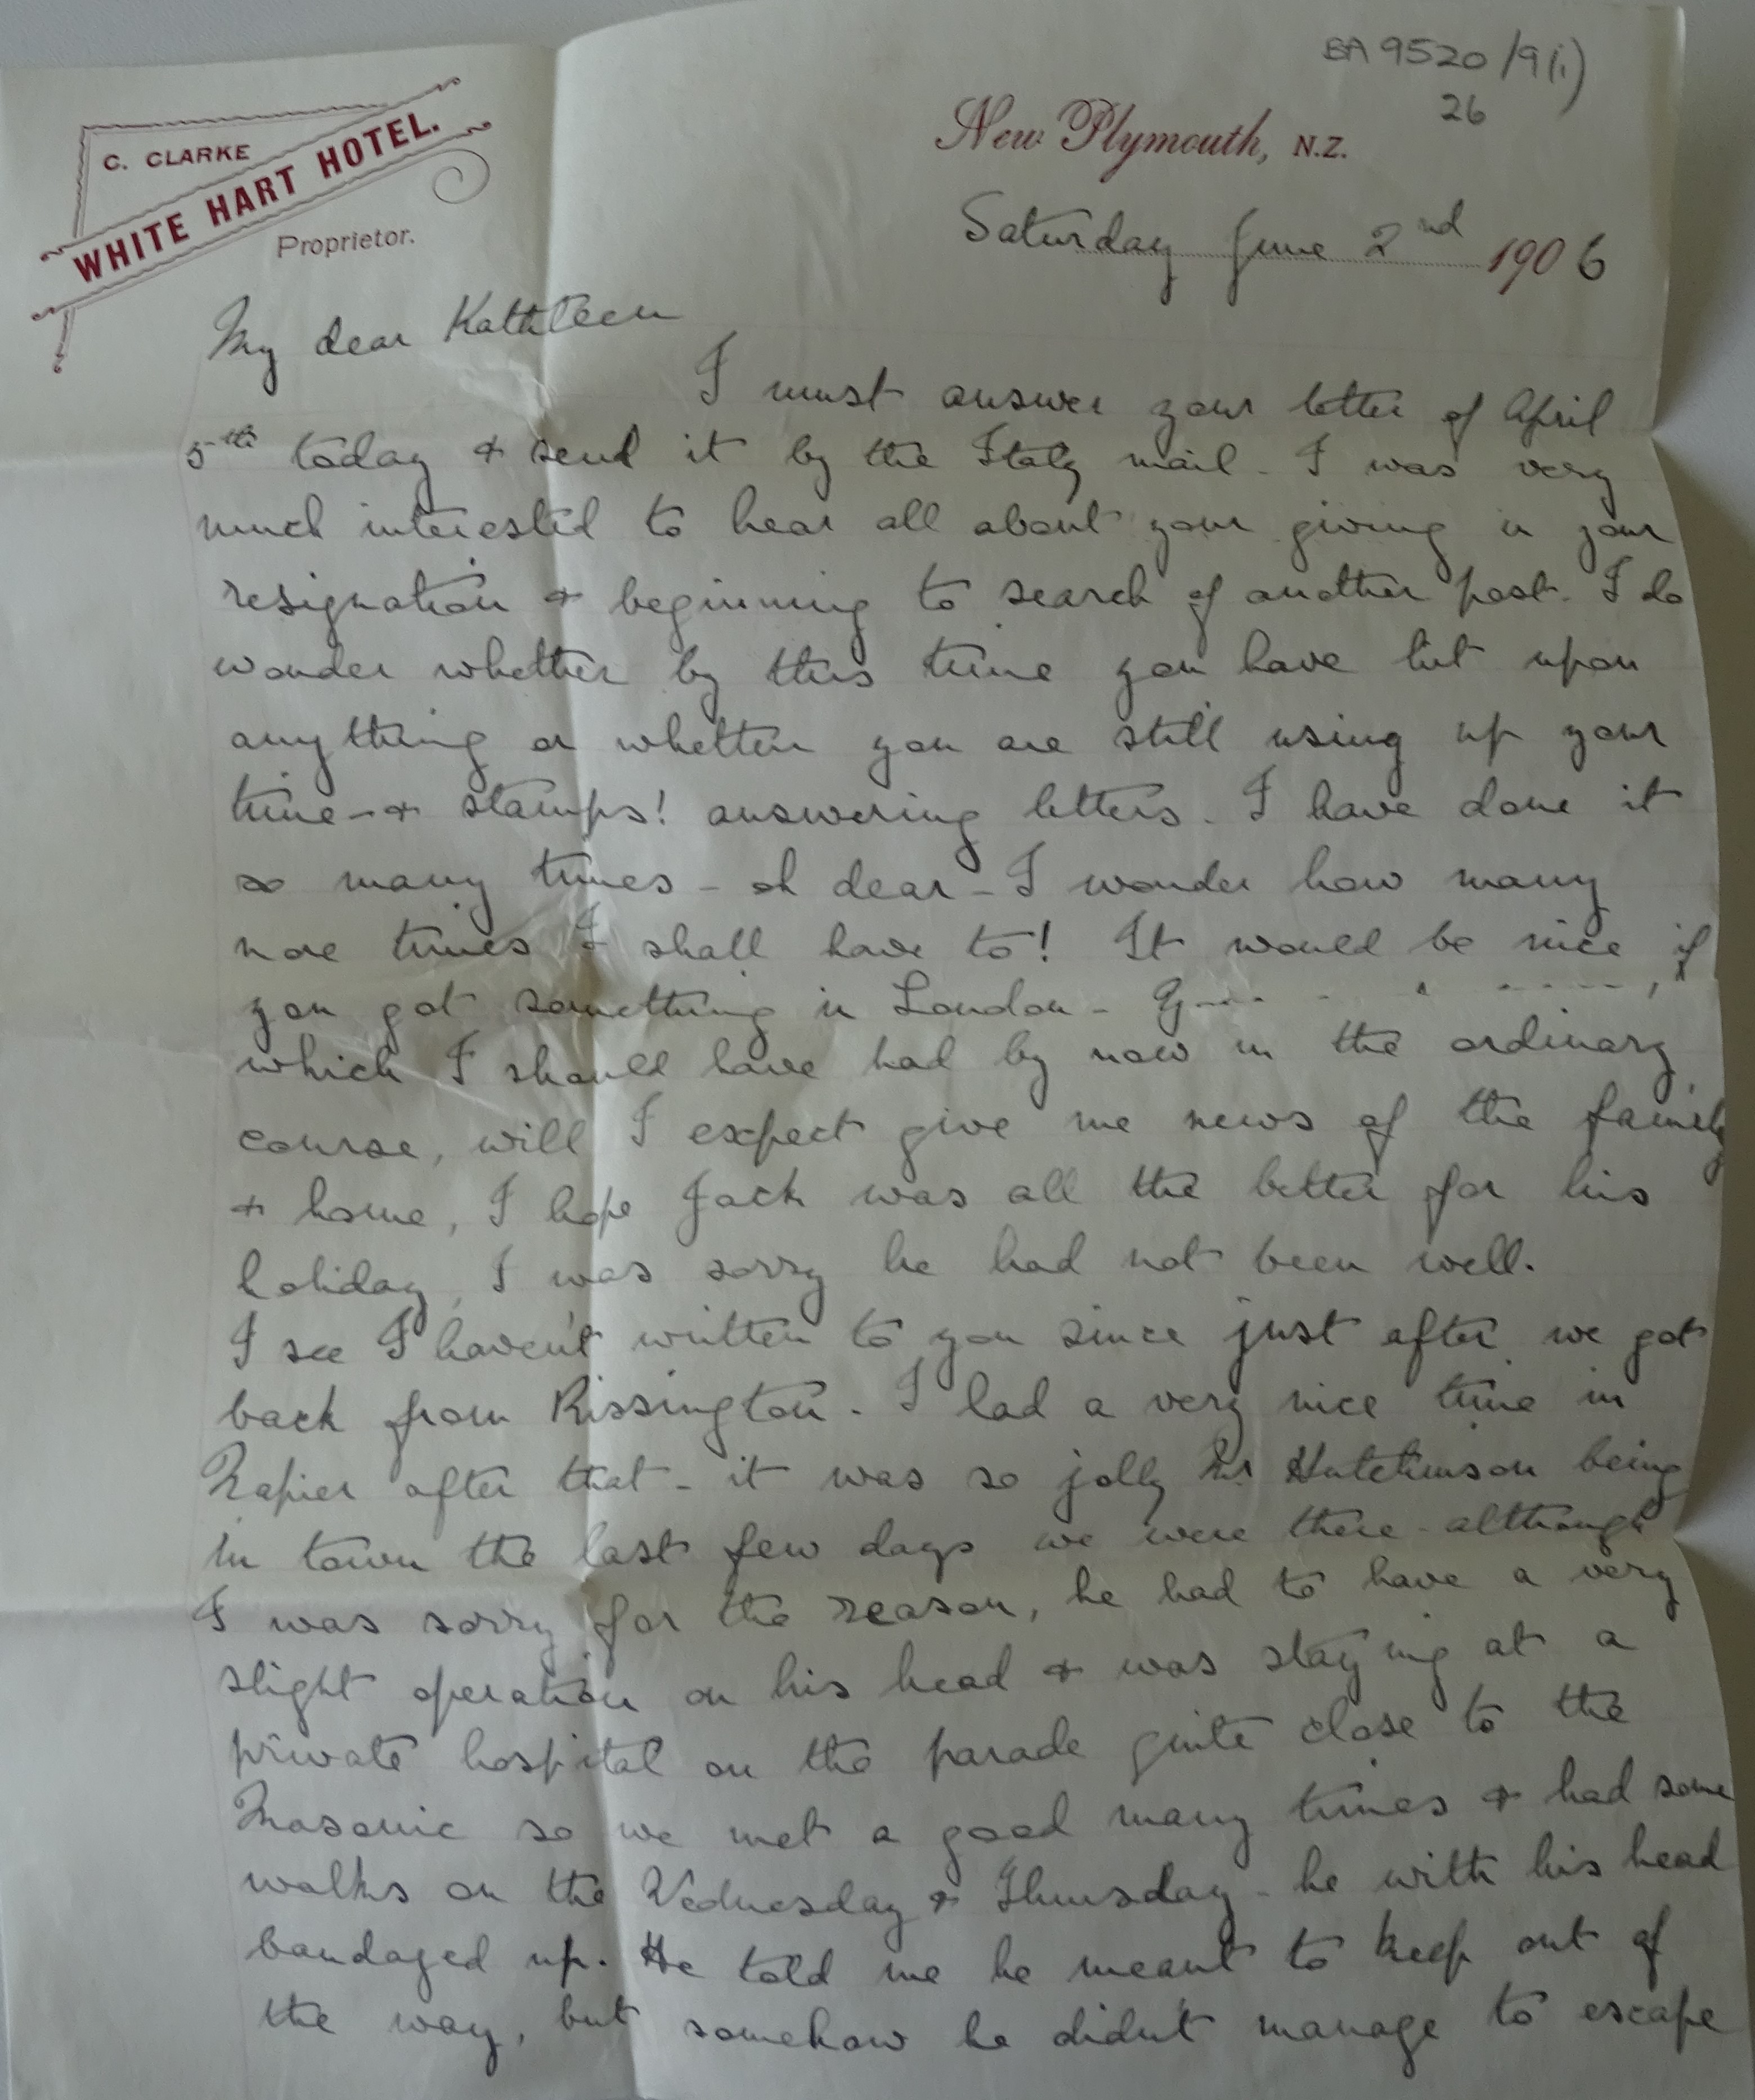 BA 9520/9(i)
26
C. CLARKE
WHITE HART HOTEL.
Proprietor.
New Plymouth, N.Z.
Saturday June 2nd 1906
My dear Kathleen
I must answer your letter of April
5th today & send it by the Italy mail - I was very
much interested to hear all about your giving in your
resignation & beginning to search of another post. I do
wonder whether by this time you have hit upon
anything or whether you are still using up your
time - & stamps! answering letters. I have done it
so many times - oh dear - I wonder how many
more times I shall have to! It would be nice if
you got something in London -
which I should have had by now in the ordinary
course, will I expect give me news of the family
& home, I hope Jack was all the better for his
holiday, I was sorry he had not been well.
I see I haven't written to you since just after we got
back from Rissington. I had a very nice time in
Napier after that - it was so jolly Mr Hutchinson being
in town the last few days we were there - although
I was sorry for the reason, he had to have a very
slight operation on his head & was staying at a
private hospital on the parade quite close to the
Masonic so we met a good many times & had some
walks on the Wednesday & Thursday - he with his head
bandaged up. He told me he meant to keep out of
the way, but somehow he didn't manage to escape